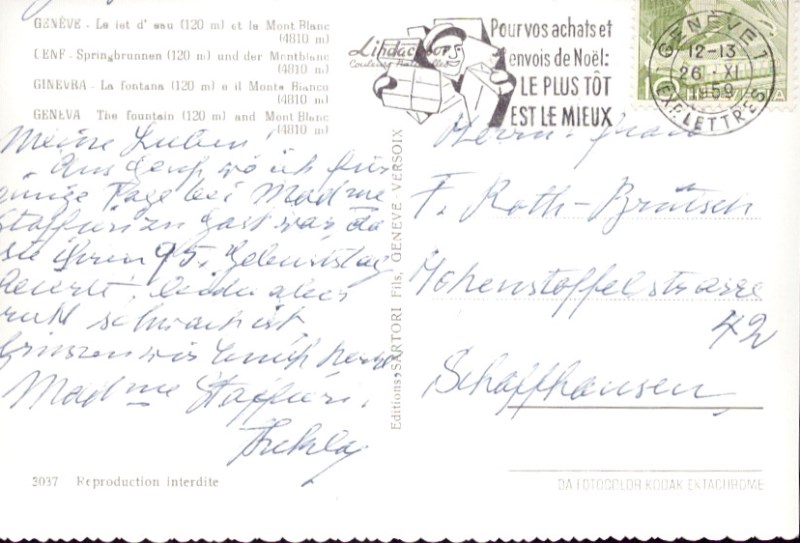 GENÈVE - Le jet d'eau (120 m) et le Mont Blanc
(4810 m)
GENF - Springbrunnen (120 m) und der Montblanc
(4810 m)
GINEVRA - La fontana (120 m) e il Monte Bianco
(4810 m)
GENEVA The fountain (120 m) and Mont Blanc
(4810 m)
Pour vos achats et
envois de Noël:
LE PLUS TÔT
EST LE MIEUX
GENÈVE 1
12-13
26 XI
1959
EXP. LETTRES
Meine Lieben
Aus Genf, wo ich für
einige Tage bei Madme
zu Gast war, da
sie ihren 95. Geburtstag
feiert, leider aber
schwach ist
grüssen wir Euch
Madme
Herrn
F. Roth-Brütsch
Hohenstoffelstrasse
42
Schaffhausen
Editions SARTORI Fils, GENÈVE-VERSOIX
3037 Reproduction interdite
DA FOTOCOLOR KODAK EKTACHROME